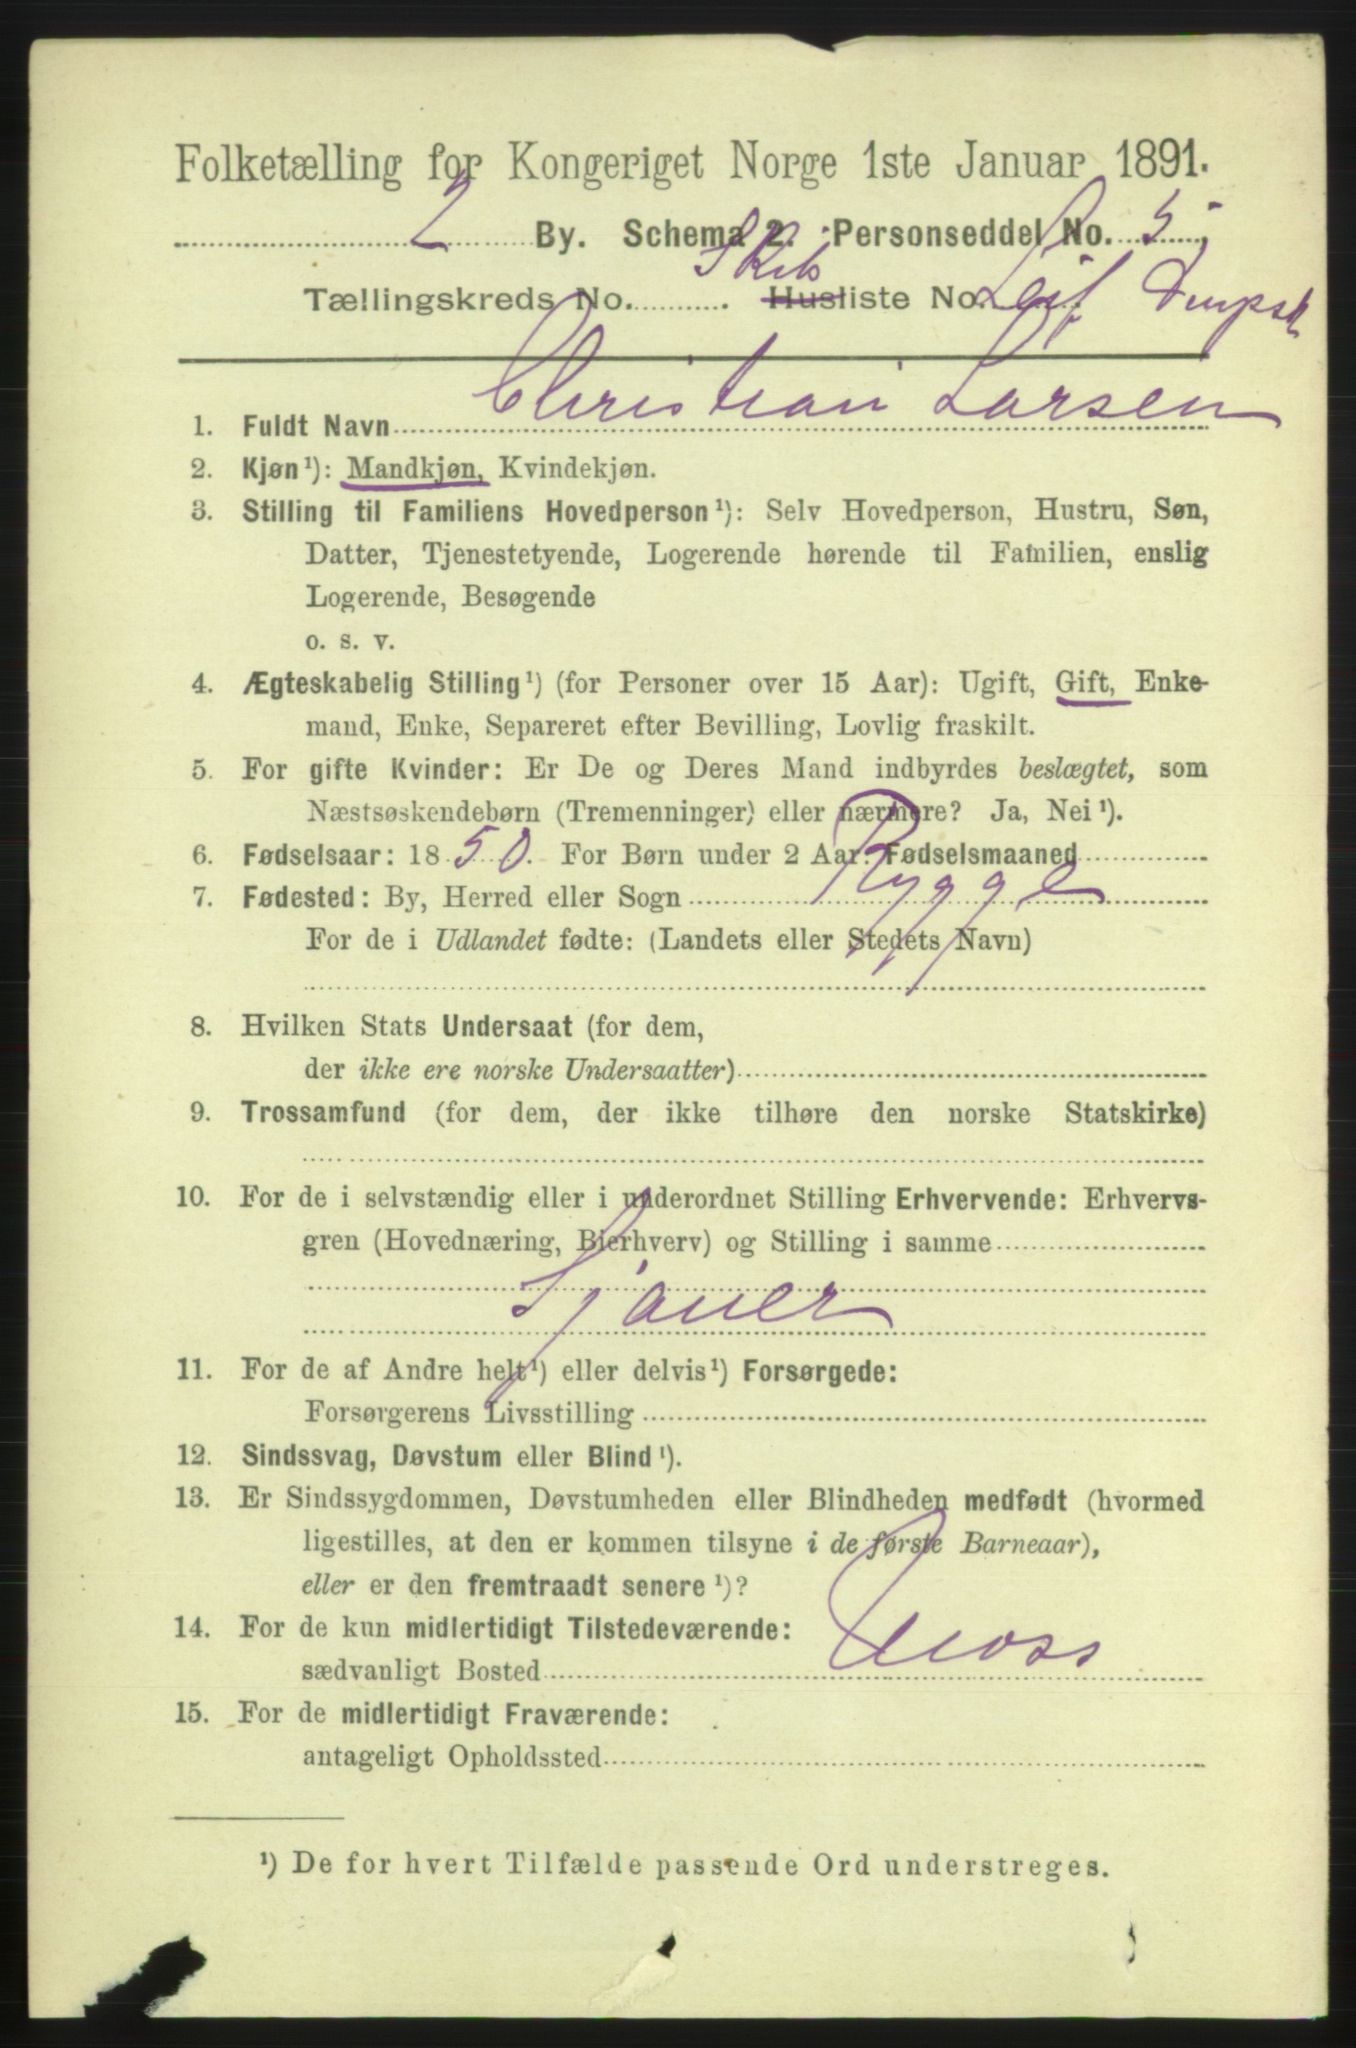 Folketælling for Kongeriget Norge 1ste Januar 1891.
2 By. Schema 2. Personseddel No. 5
Skibs
Tællingskreds No. Husliste No. Leif
1. Fuldt Navn Christian Larsen
2. Kjøn¹): Mandkjøn, Kvindekjøn.
3. Stilling til Familiens Hovedperson¹): Selv Hovedperson, Hustru, Søn,
Datter, Tjenestetyende, Logerende hørende til Familien, enslig
Logerende, Besøgende
o. s. v.
4. Ægteskabelig Stilling¹) (for Personer over 15 Aar): Ugift, Gift, Enke-
mand, Enke, Separeret efter Bevilling, Lovlig fraskilt.
5. For gifte Kvinder: Er De og Deres Mand indbyrdes beslægtet, som
Næstsøskendebørn (Tremenninger) eller nærmere? Ja, Nei¹).
6. Fødselsaar: 1850. For Børn under 2 Aar: Fødselsmaaned
7. Fødested: By, Herred eller Sogn Rygge
For de i Udlandet fødte: (Landets eller Stedets Navn)
8. Hvilken Stats Undersaat (for dem,
der ikke ere norske Undersaatter)
9. Trossamfund (for dem, der ikke tilhøre den norske Statskirke)
10. For de i selvstændig eller i underordnet Stilling Erhvervende: Erhvervs-
gren (Hovednæring, Bierhverv) og Stilling i samme
Sjauer
11. For de af Andre helt¹) eller delvis¹) Forsørgede:
Forsørgerens Livsstilling
12. Sindssvag, Døvstum eller Blind¹).
13. Er Sindssygdommen, Døvstumheden eller Blindheden medfødt (hvormed
ligestilles, at den er kommen tilsyne i de første Barneaar),
eller er den fremtraadt senere¹)?
14. For de kun midlertidigt Tilstedeværende:
sædvanligt Bosted Moss
15. For de midlertidigt Fraværende:
antageligt Opholdssted
¹) De for hvert Tilfælde passende Ord understreges.